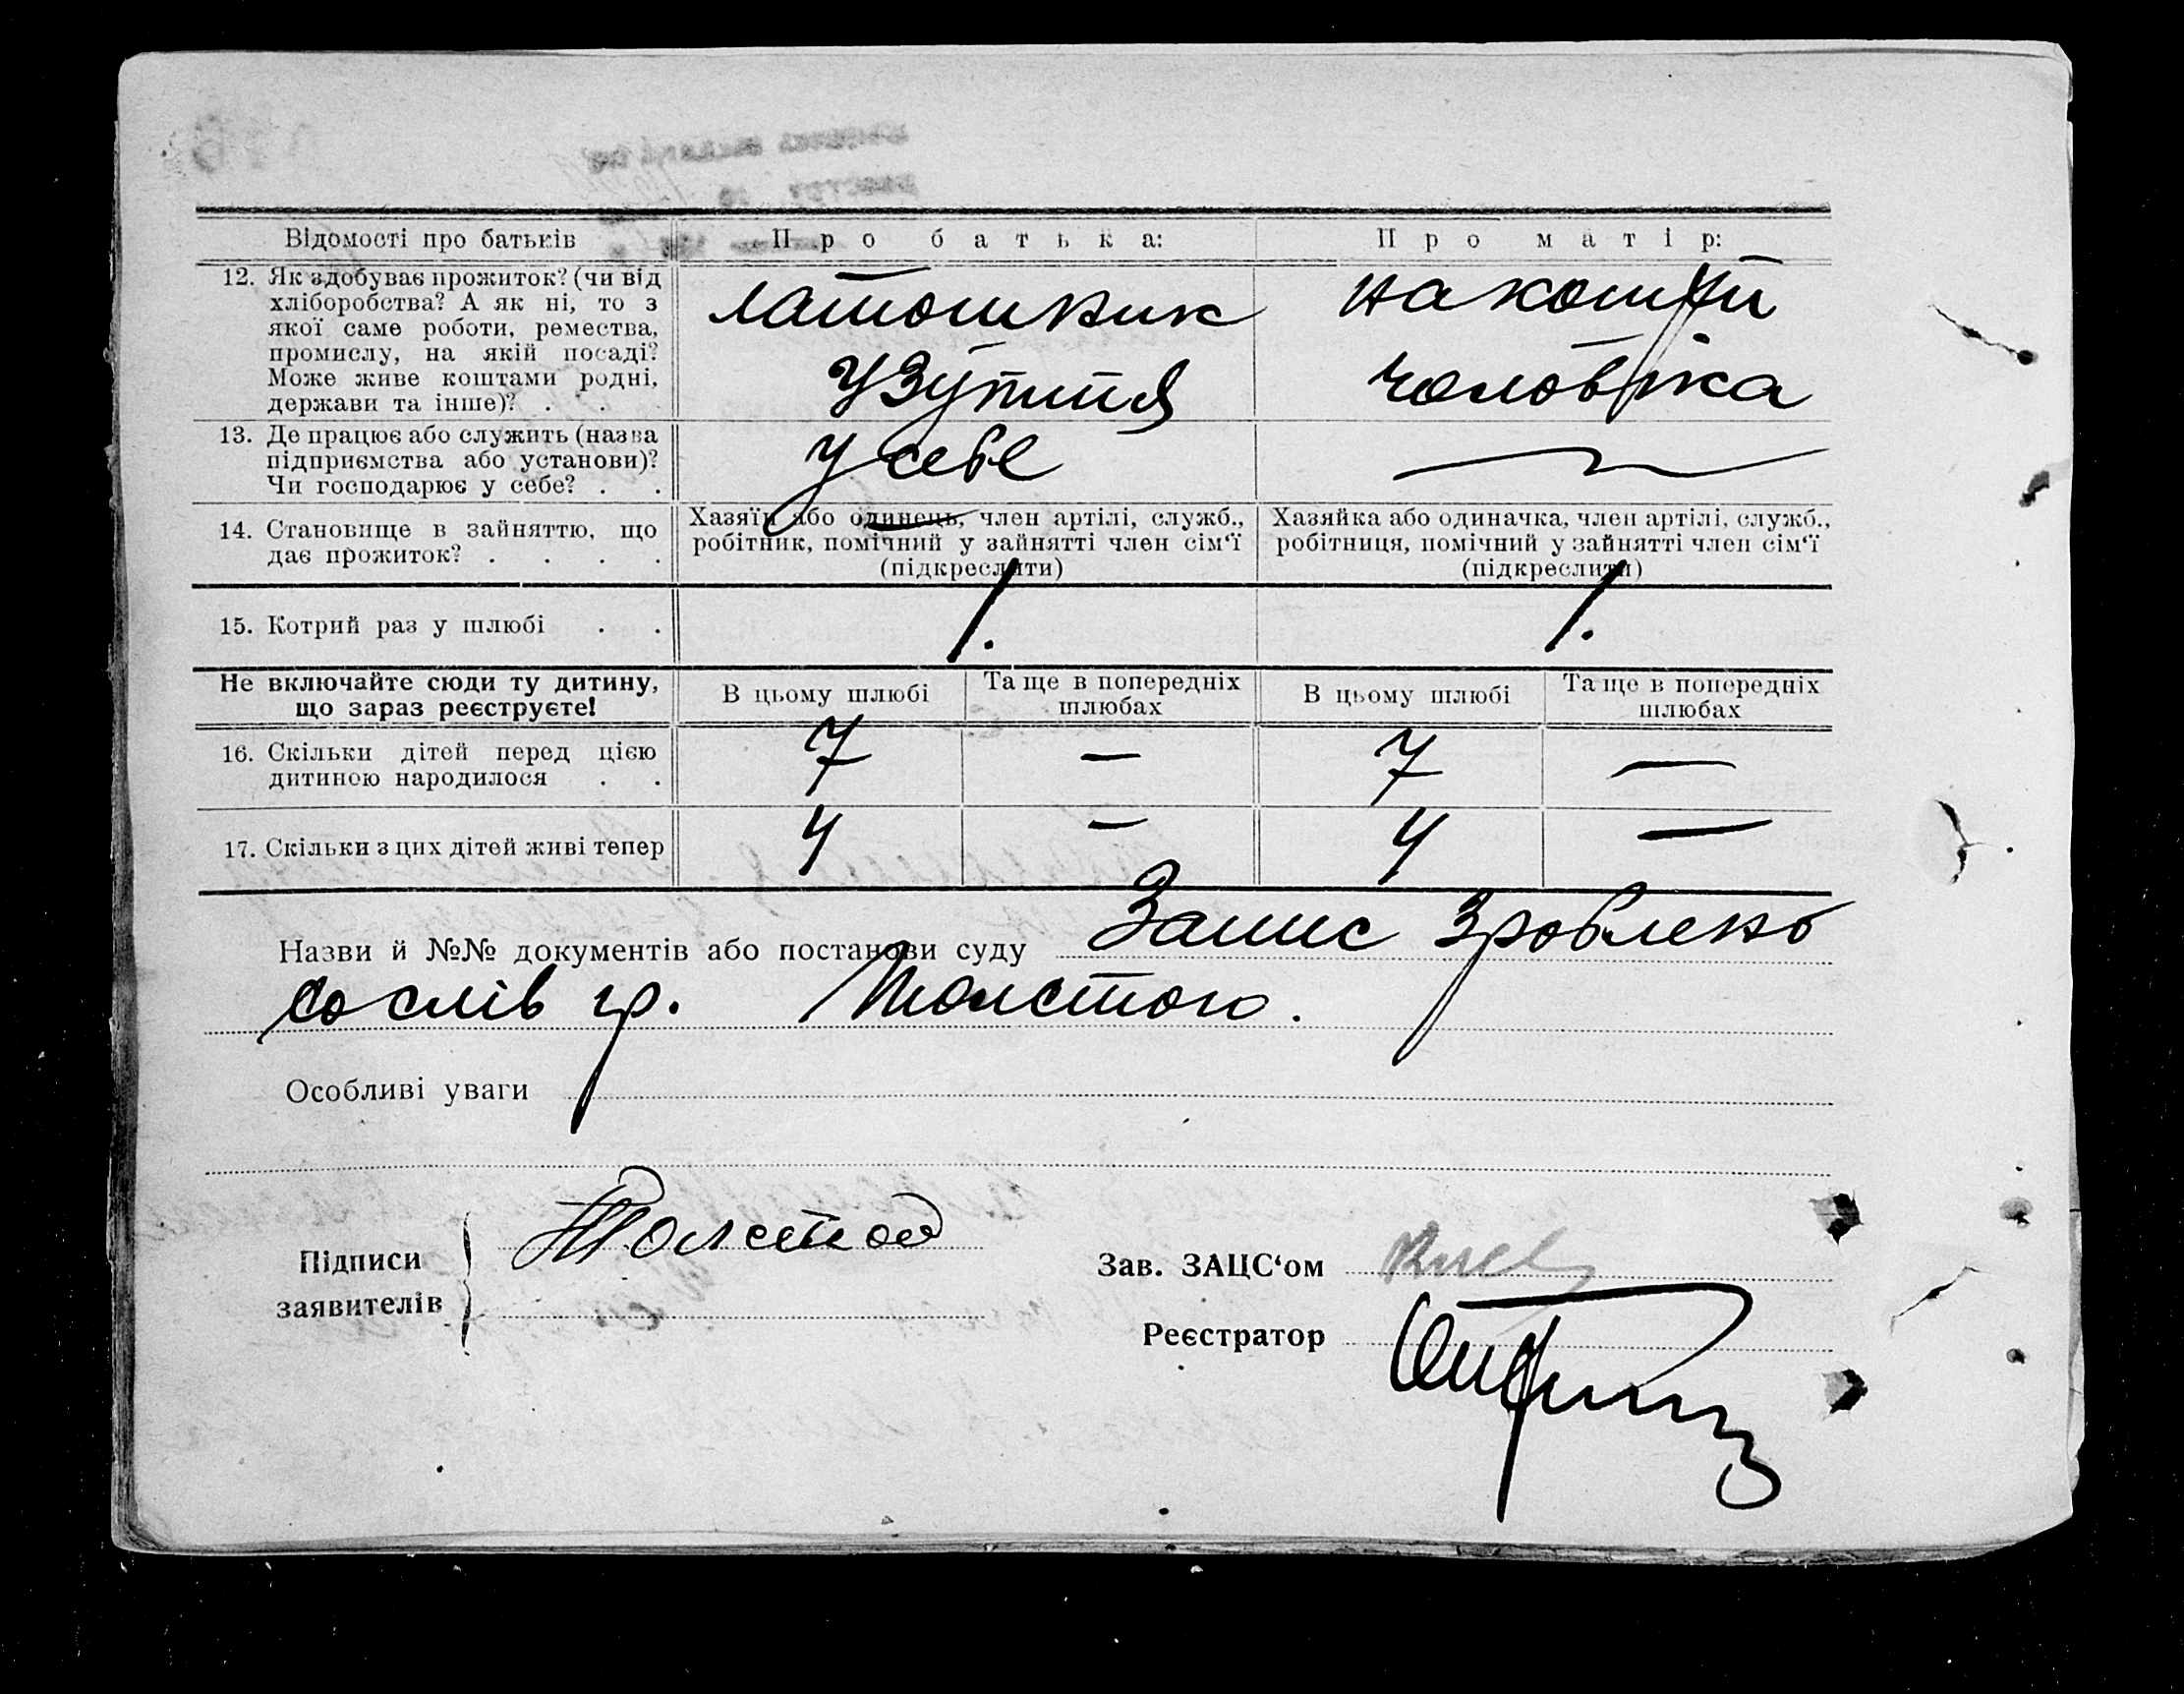 Відомості про батьків
Про батька:
Про матір:
12. Як здобуває прожиток? (чи від
хліборобства? А як ні, то з
якої саме роботи, ремества,
промислу, на якій посаді?
Може живе коштами родні,
держави та інше)? . .
латошник
узуття
на кошти
чоловіка
13. Де працює або служить (назва
підприємства або установи)?
Чи господарює у себе? . .
у себе
—
14. Становище в зайняттю, що
дає прожиток? . . . .
Хазяїн або одинець, член артілі, служб.,
робітник, помічний у зайнятті член сім‘ї
(підкреслити)
Хазяйка або одиначка, член артілі, служб.,
робітниця, помічний у зайнятті член сім‘ї
(підкреслити)
15. Котрий раз у шлюбі . .
1.
1.
Не включайте сюди ту дитину,
що зараз реєструєте!
В цьому шлюбі
Та ще в попередніх
шлюбах
В цьому шлюбі
Та ще в попередніх
шлюбах
16. Скільки дітей перед цією
дитиною народилося . .
7 — 7 —
17. Скільки з цих дітей живі тепер
4 — 4 —
Назви й №№ документів або постанови суду Запис зроблено
со слів гр. Толстого.
Особливі уваги
Підписи
заявителів
Толстой
Зав. ЗАЦС‘ом
Реєстратор